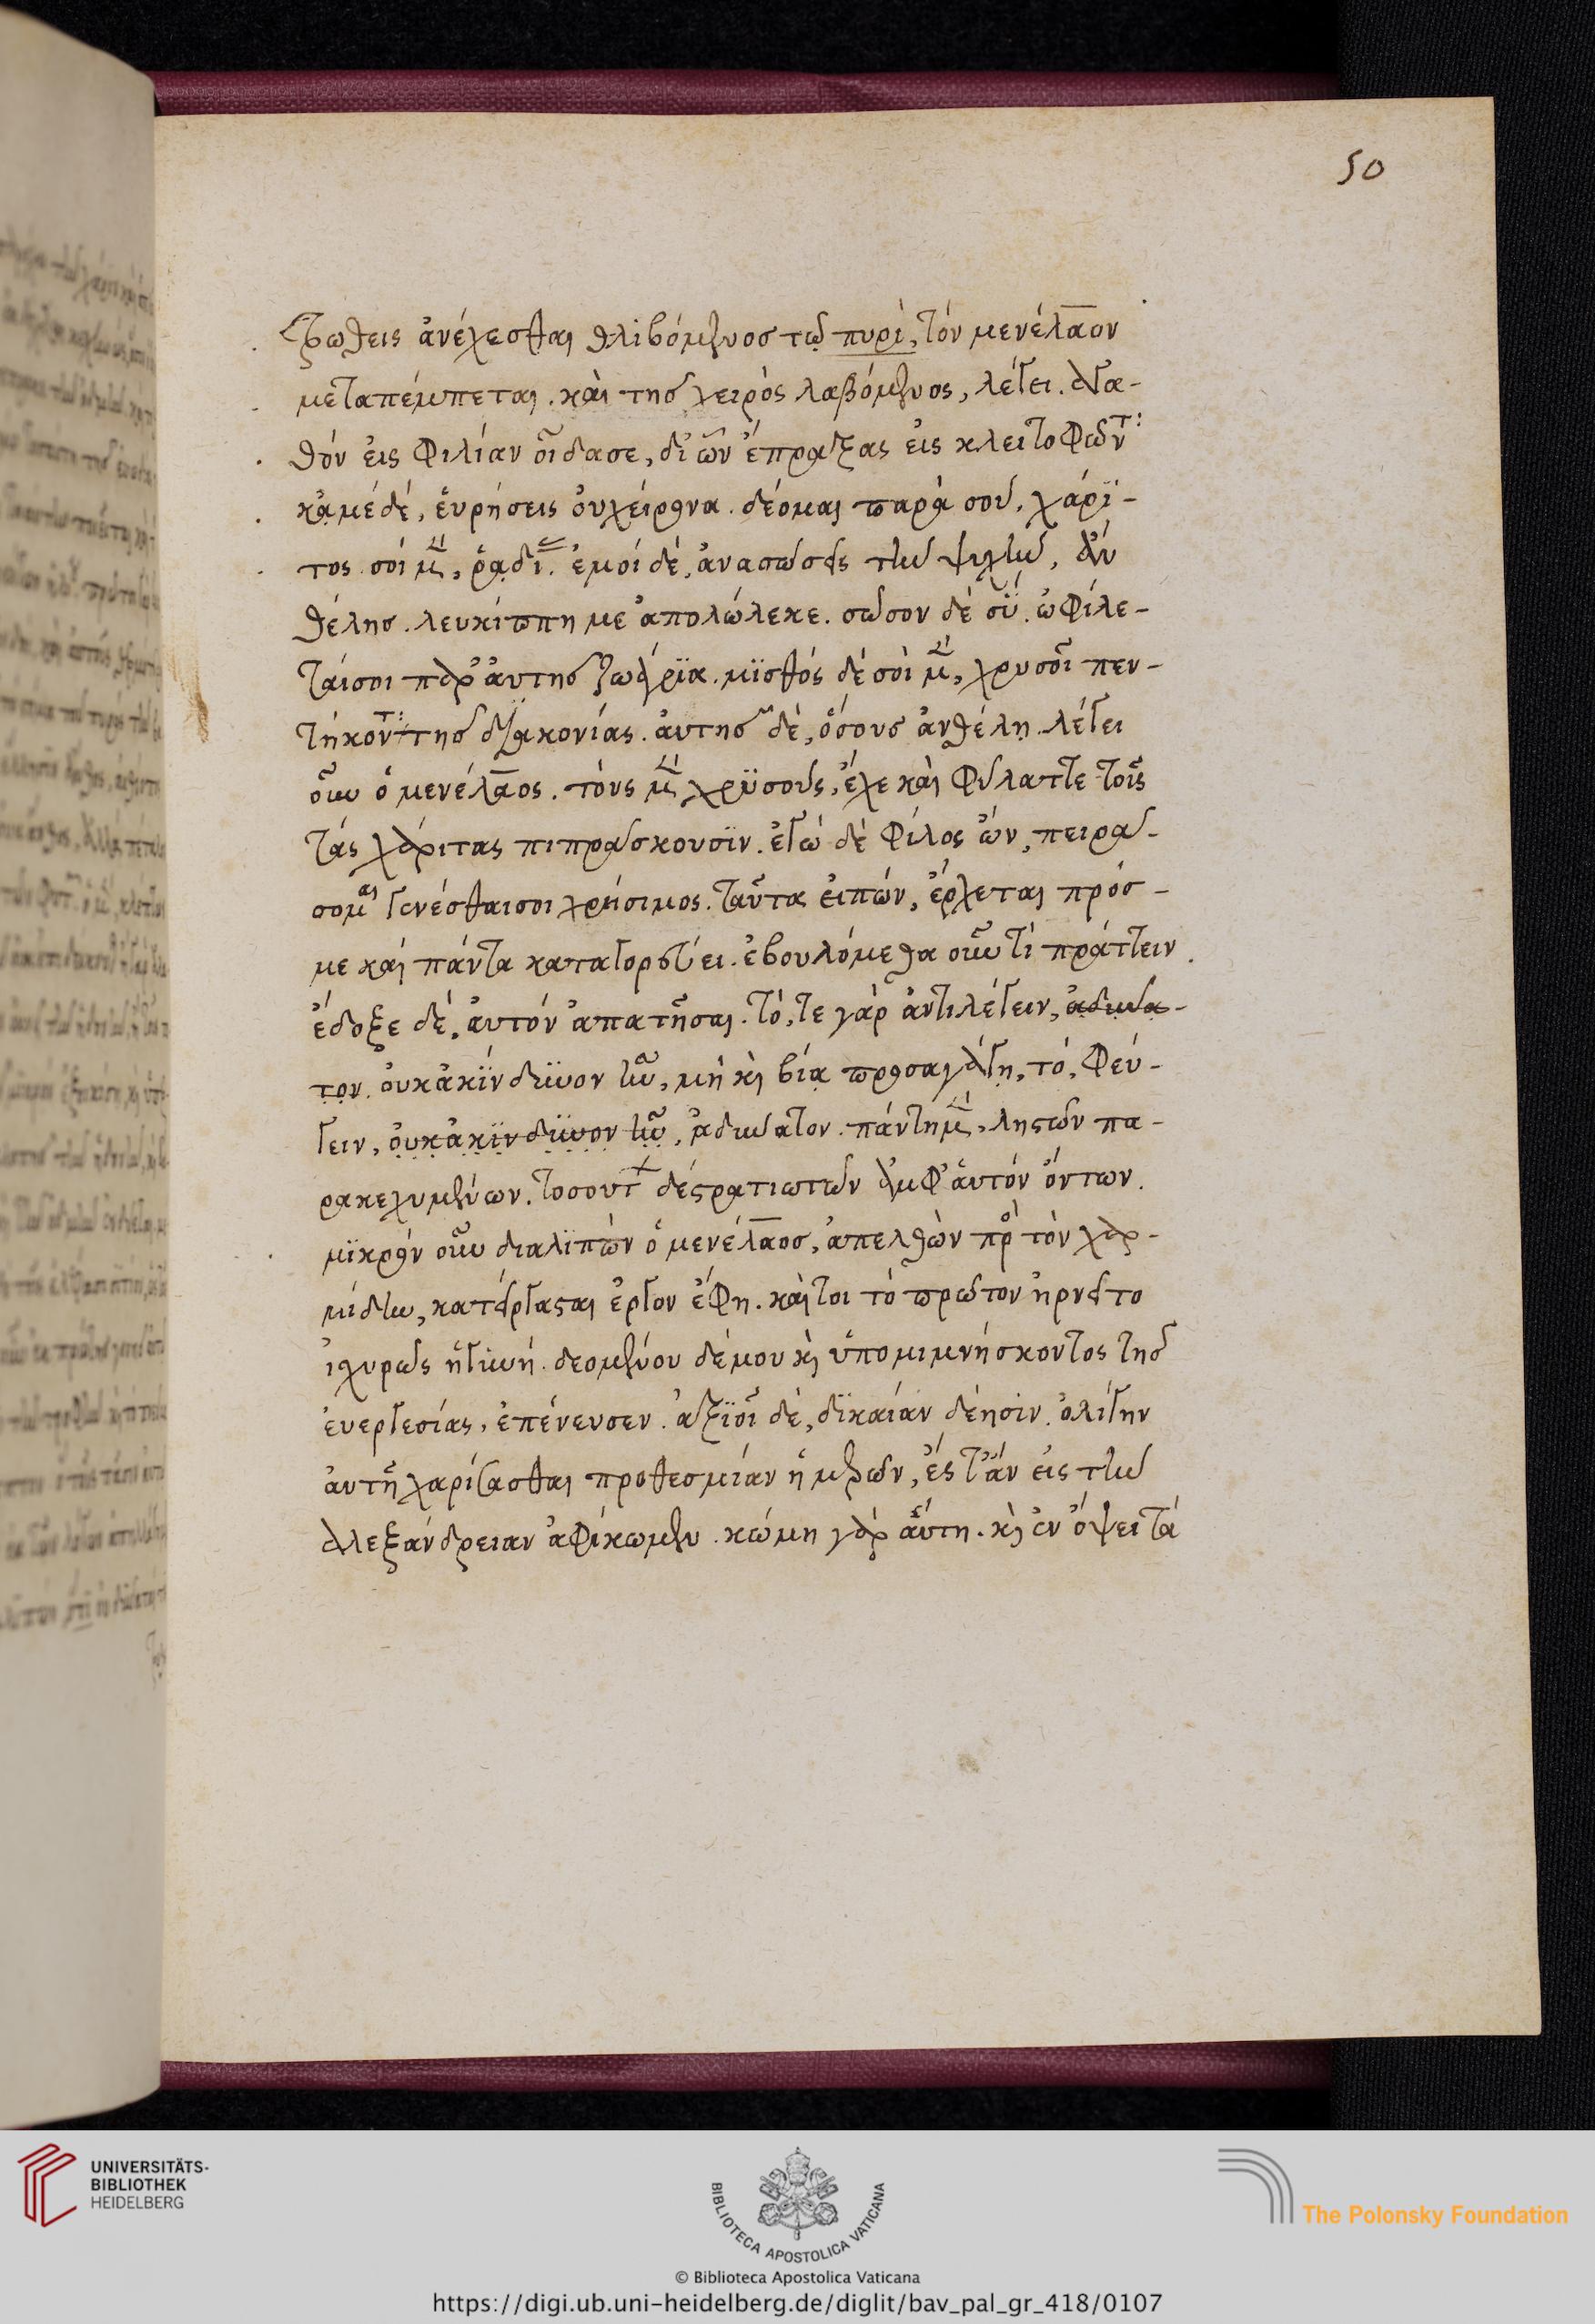 50
τρωθεὶς ἀνέχεσθαι θλιβόμενος τῷ πυρὶ, τόν μενέλαον
μεταπέμπεται. καὶ τῆς χειρὸς λαβόμενος, λέγει. ἀγα-
θόν εἰς φιλίαν οἶδασε, δι ὧν ἔπραξας εἰς κλειτοφῶντ:
κἀμέ δέ, εὑρήσεις οὐχείρονα. δέομαι παρὰ σοῦ, χάρι-
τος. σοί μὲν, ῥαδί. ἐμοί δέ, ἀνασώσεις τὴν ψυχὴν, ἂν
θέλης. λευκίππη με ἀπολώλεκε. σῶσον δέ σὺ. ὠφίλε-
ταίσοι παρ' αὐτῆς ζωάγρια. μισθός δέ σὸι μὲν, χρυσοῖ πεν-
τήκοντ: τῆς διακονίας. αὐτῆς δέ, ὅσους ἀνθέλη. λέγει
οὖν ὁ μενέλαος. τοὺς μὲν χρυσοῦς, ἔχε καὶ φύλαττε τοῖς
τάς χάριτας πιπράσκουσιν. ἐγώ δέ φίλος ὤν, πειρά-
σομαι γενέσθαισοι χρήσιμος. ταῦτα εἰπών, ἔρχεται πρός-
με καὶ πάντα καταγορεύει. ἐβουλόμεθα οὖν τί πράττειν.
ἔδοξε δέ, αὐτόν ἀπατῆσαι. τό, τε γάρ ἀντιλέγειν, ἀδύνα-
τον. οὐκἀκίνδυνον ἦν, μή κὶ βία προσαγάγη, τό, φεύ-
γειν, οὐκἀκίνδυνον ἦν, ἀδύνατον. πάντημὲν, ληστῶν πα-
ρακεχυμένων. τοσούτ δέστρατιωτῶν ἀμφ' αὐτόν ὄντων.
μικρὸν οὖν διαλιπὼν ὁ μενέλαος, ἀπελθὼν πρὸ τὸν χαρ-
μίδην, κατείργασται ἔργον ἔφη. καίτοι τό πρῶτον ἠρνεῖτο
ἰχυρῶς ἡ γυνή. δεομένου δέμου κὶ ὑπομιμνήσκοντος τῆς
εὐεργεσίας, ἐπένευσεν. ἀξιοῖ δέ, δικαίαν δέησιν. ὀλίγην
αὐτῆ χαρίσασθαι προθεσμίαν ἡμερῶν, ἔς τ' ἂν εἰς τὴν
ἀλεξάνδρειαν ἀφίκωμεν. κώμη γάρ αὕτη. κὶ ἐν ὄψει τά
UNIVERSITÄTS-
BIBLIOTHEK
HEIDELBERG
BIBLIOTECA APOSTOLICA VATICANA
The Polonsky Foundation
© Biblioteca Apostolica Vaticana
https://digi.ub.uni-heidelberg.de/diglit/bav_pal_gr_418/0107